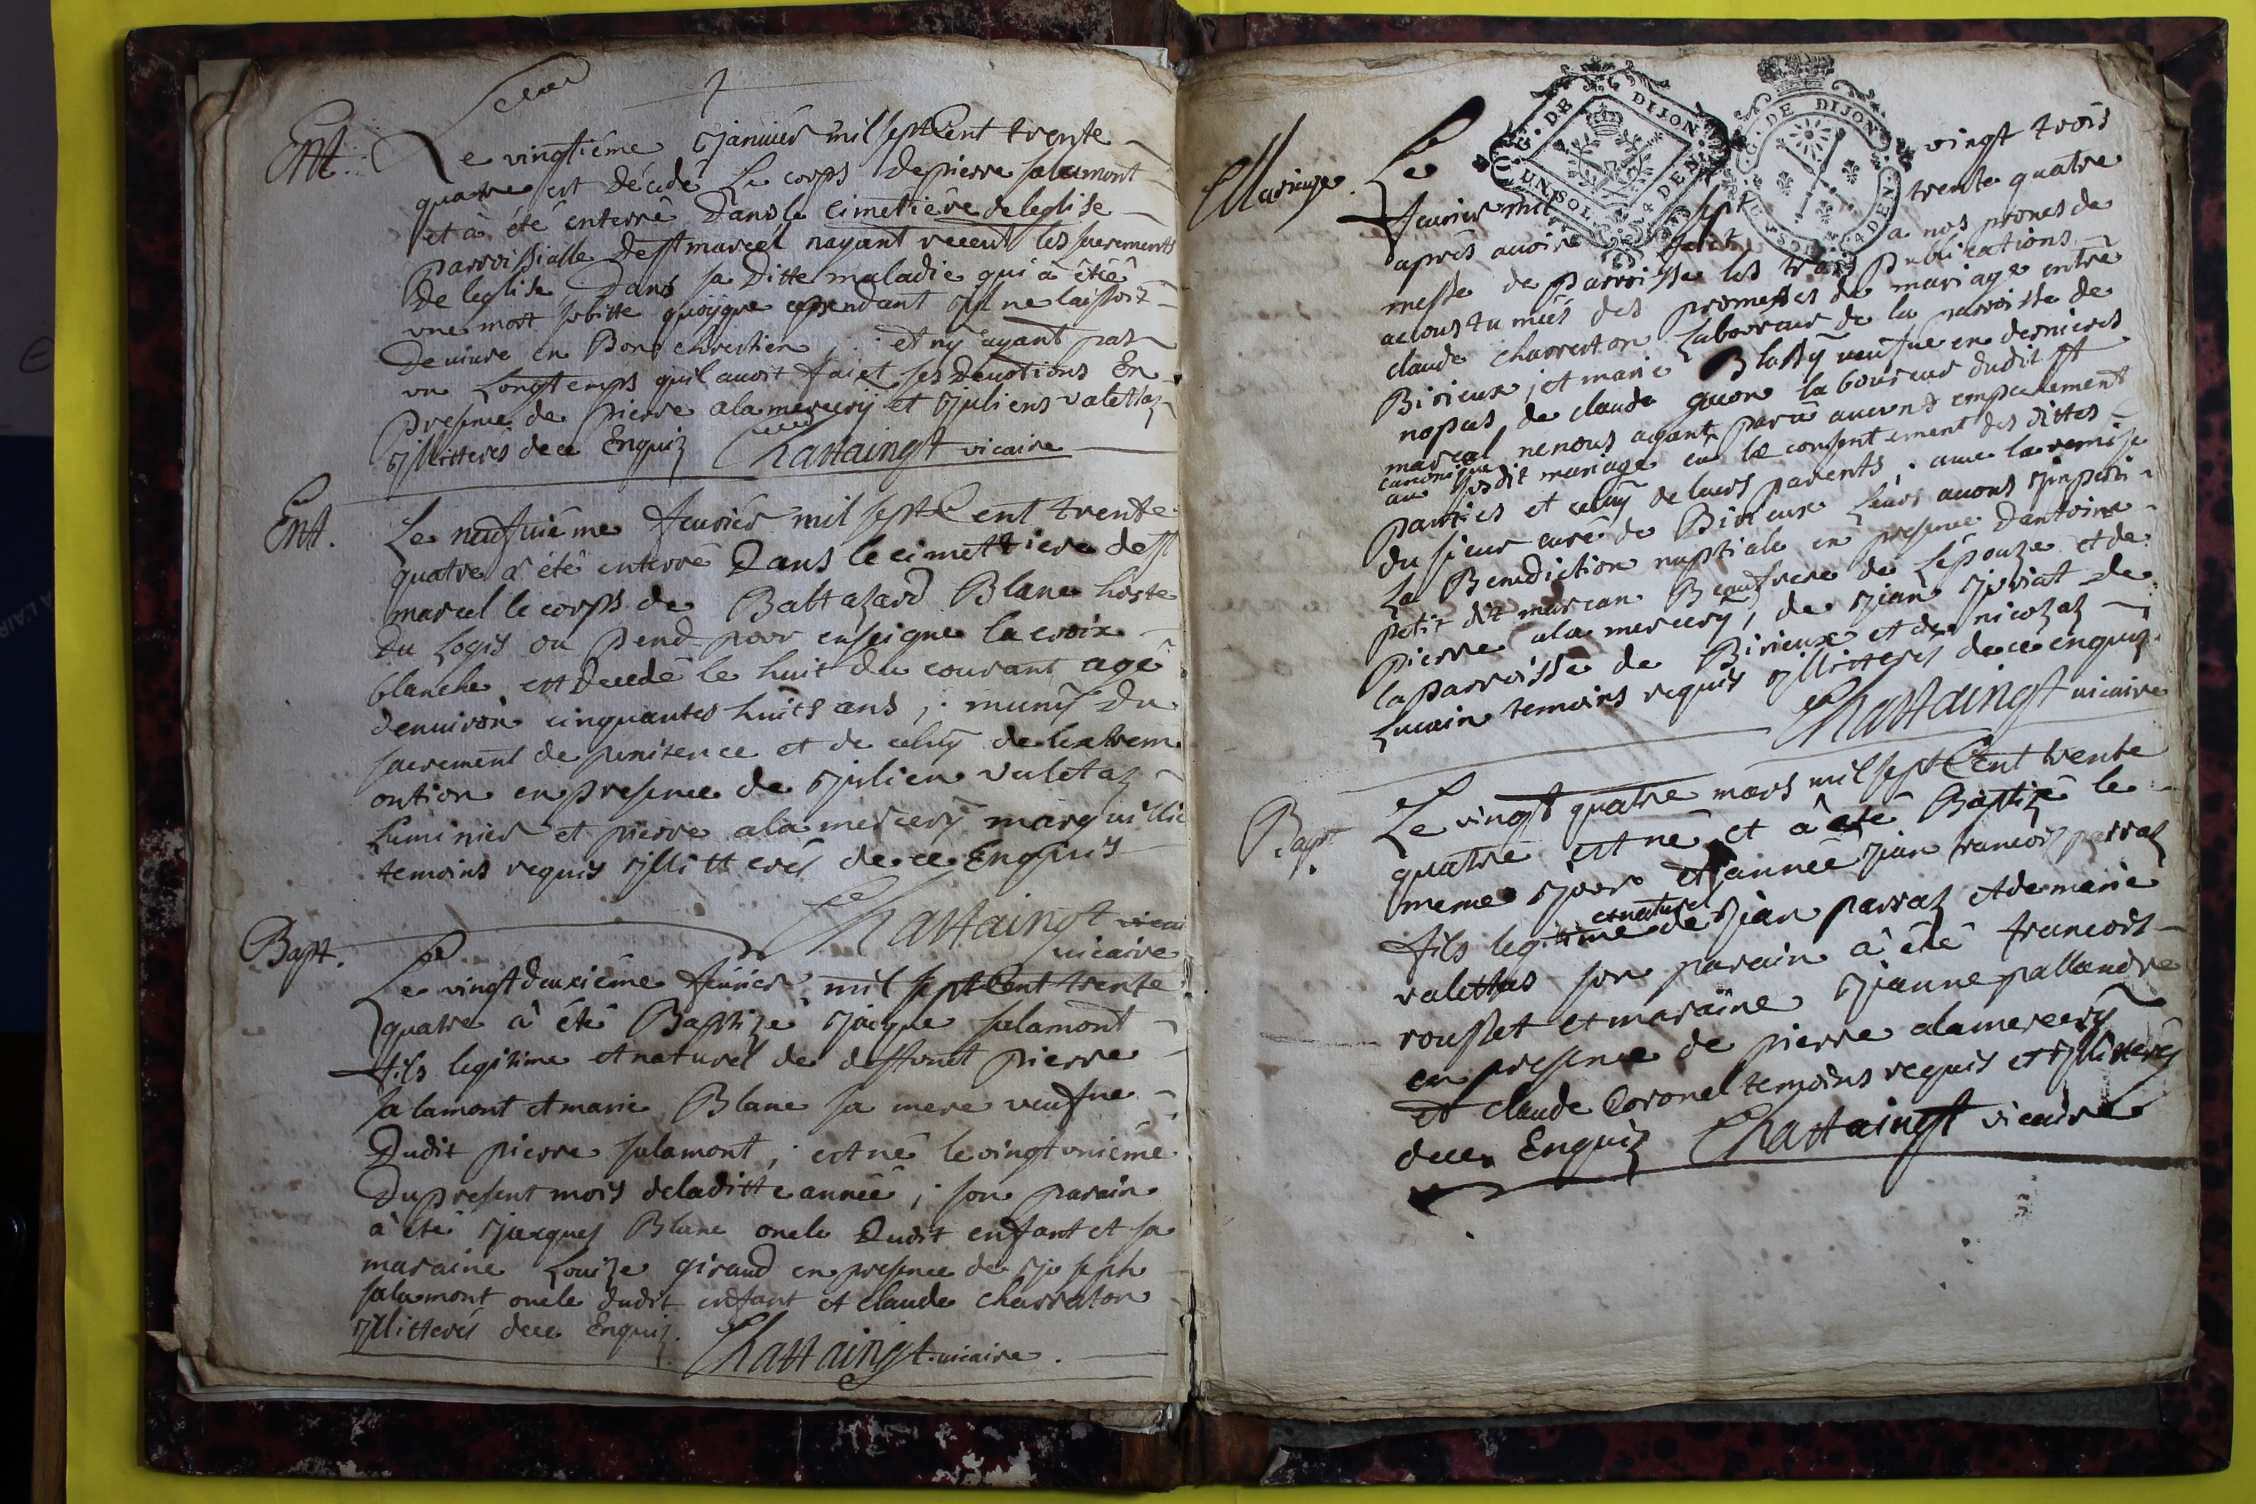 Ent.
Le vingtiéme Janvier mil sept Cent trente
quatre est décédé Le corps de pierre salamont
et à été enterré Dans le cimetiére de leglise
parroissialle de st marcel nayant receut les sacrements
De leglise Dans sa Ditte maladie qui à étéé
une mort subitte quoyque cependant Jl ne laissoit
De vivre en Bon chrestien ; et ny ayant pas
un Longtemps quil avoit faict ses Devotions En
presence de pierre alamercery et Juliens valettaz
Jllitterés de ce Enquiz Chattaingt vicaire
Ent.
Le neufvième fevrier mil sept Cent trente
quatre à été enterré Dans le cimettiere de st
marcel le corps de Baltazard Blanc hoste
Du Logis ou pend pour enseigne la croix
blanche est Decedé le huit du courant agé
denviron cinquantes huits ans ; muny Du
sacrement de penitence et de celuy de lextrem
ontion en presence de Julien valetaz
Luminier et pierre alamercery marguillie
temoins requis Jllitterés de ce Enquis
Chattaingt
vicaire
Bapt.
Le vingt deuxiéme fevrier mil sept Cent trente
quatre à été Baptizé Jacque salamont
fils legitime et naturel de deffunct pierre
salamont et marie Blanc sa mere veufve
Dudit pierre salamont ; est né le vingt uniéme
Du present mois de laditte année ; son parain
à été Jacques Blanc oncle Dudit enfant et sa
maraine Louize giraud en presence de Joseph
salamont oncle dudit enfant et claude charreton
Jllitterés de ce Enquiz. Chattaingt vicaire.
G. DE DIJON
UN SOL 4 DEN
G. DE DIJON
4 DEN
Mariage.
Le vingt trois
fevrier mil sept trente quatre
après avoir fait a nos prones de
messe de parroisse les trois publications
acoustumées des promesses de mariage entre
claude charreton Laboureur de la parroisse de
Birieux ; et marie Blassy veufve en dernieres
nopces de claude guon laboureur dudit st
marcel nenous ayant paru aucuns empechement
canonique
au susdit mariage eu le consentement des dittes
parties et celuy de leurs parents . avec la remise
du sieur curé de Birieux Leurs avons Jmparti
La Benediction nuptiale en presence dantoine
petit dit marcan Beaufrere de Lépouze et de
pierre alamercery, de Jean Juriat de
la parroisse de Birieux et de nicolaz
Lucain temoins requis Jllitterés de ce enquiz.
Chattaingt vicaire
Bapt.
Le vingt quatre mars mil sept Cent trente
quatre est né et à été Baptizé le
meme Jour et année Jean francois parraz
et naturel
fils legitime de Jean parraz et de marie
valettas son parain à été francois
rousset et maraine Jeanne pallandre
en presence de pierre alamercery
et claude Coronel temoins requis et Jllitterés
de ce Enquiz Chattaingt vicaire